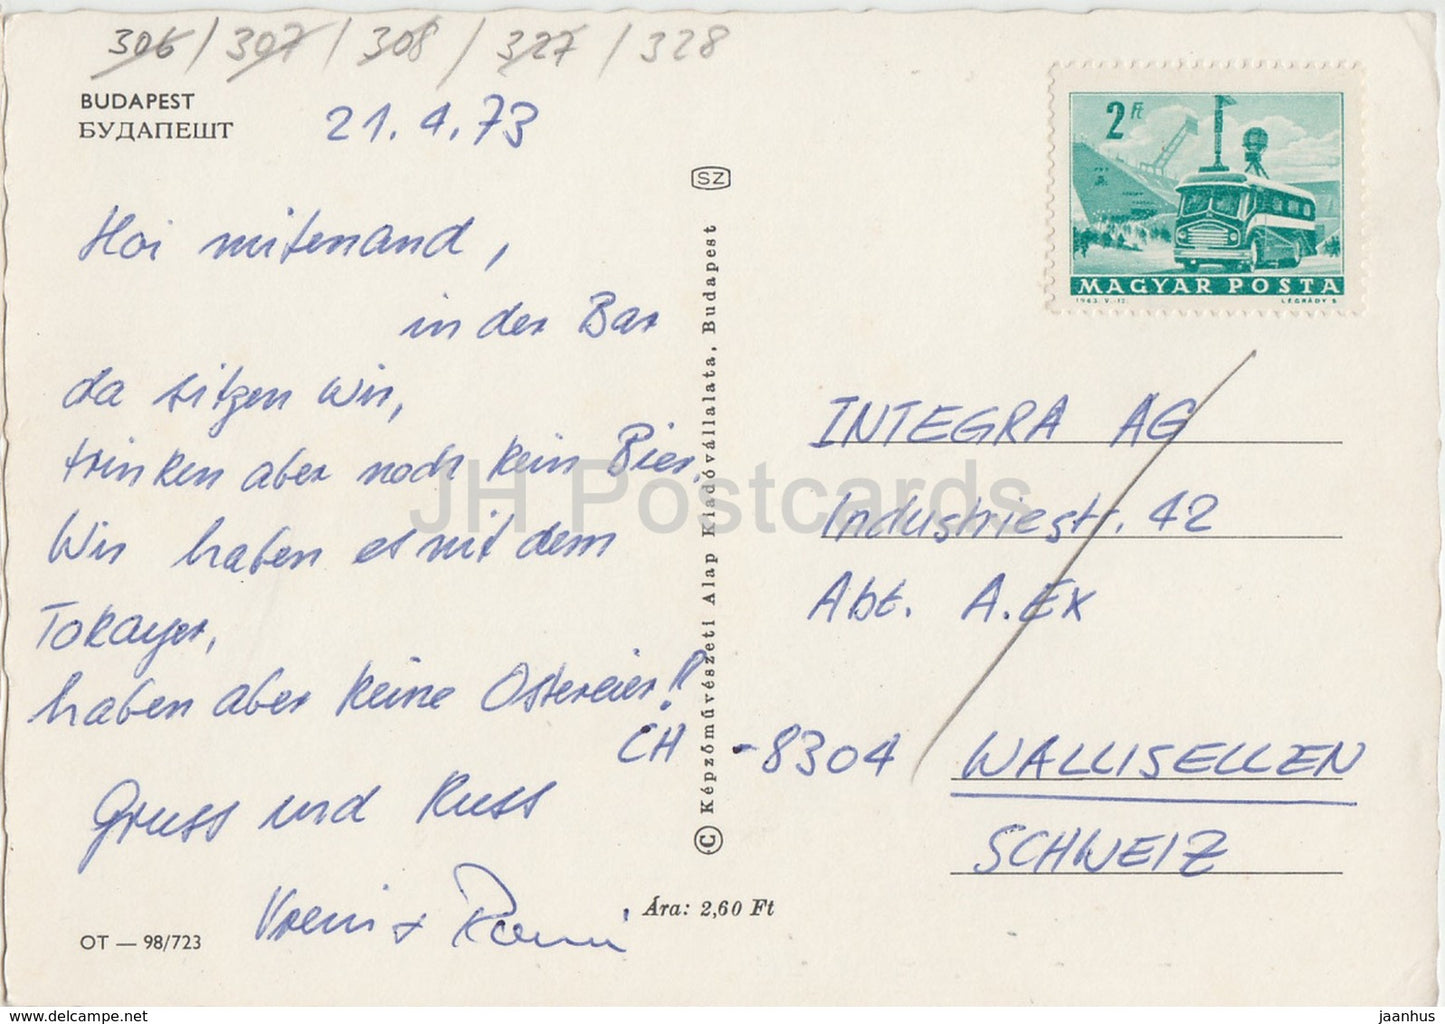 306 / 307 / 308 / 327 / 328
BUDAPEST
БУДАПЕШТ
21.4.73
Hoi mitenand,
in der Bar
da sitzen wir,
trinken aber noch kein Bier,
Wir haben es mit dem
Tokayer,
haben aber keine Ostereier!!
Gruss und Kuss
Vreni +
OT — 98/723
SZ
© Képzőművészeti Alap Kiadóvállalata, Budapest
Ára: 2,60 Ft
2 Ft
MAGYAR POSTA
1963. V. 12. LÉGRÁDY S
INTEGRA AG
Industriestr. 42
Abt. A.Ex
CH - 8304 WALLISELLEN
SCHWEIZ
JH Postcards
jaanhus - https://jhpostcards.com